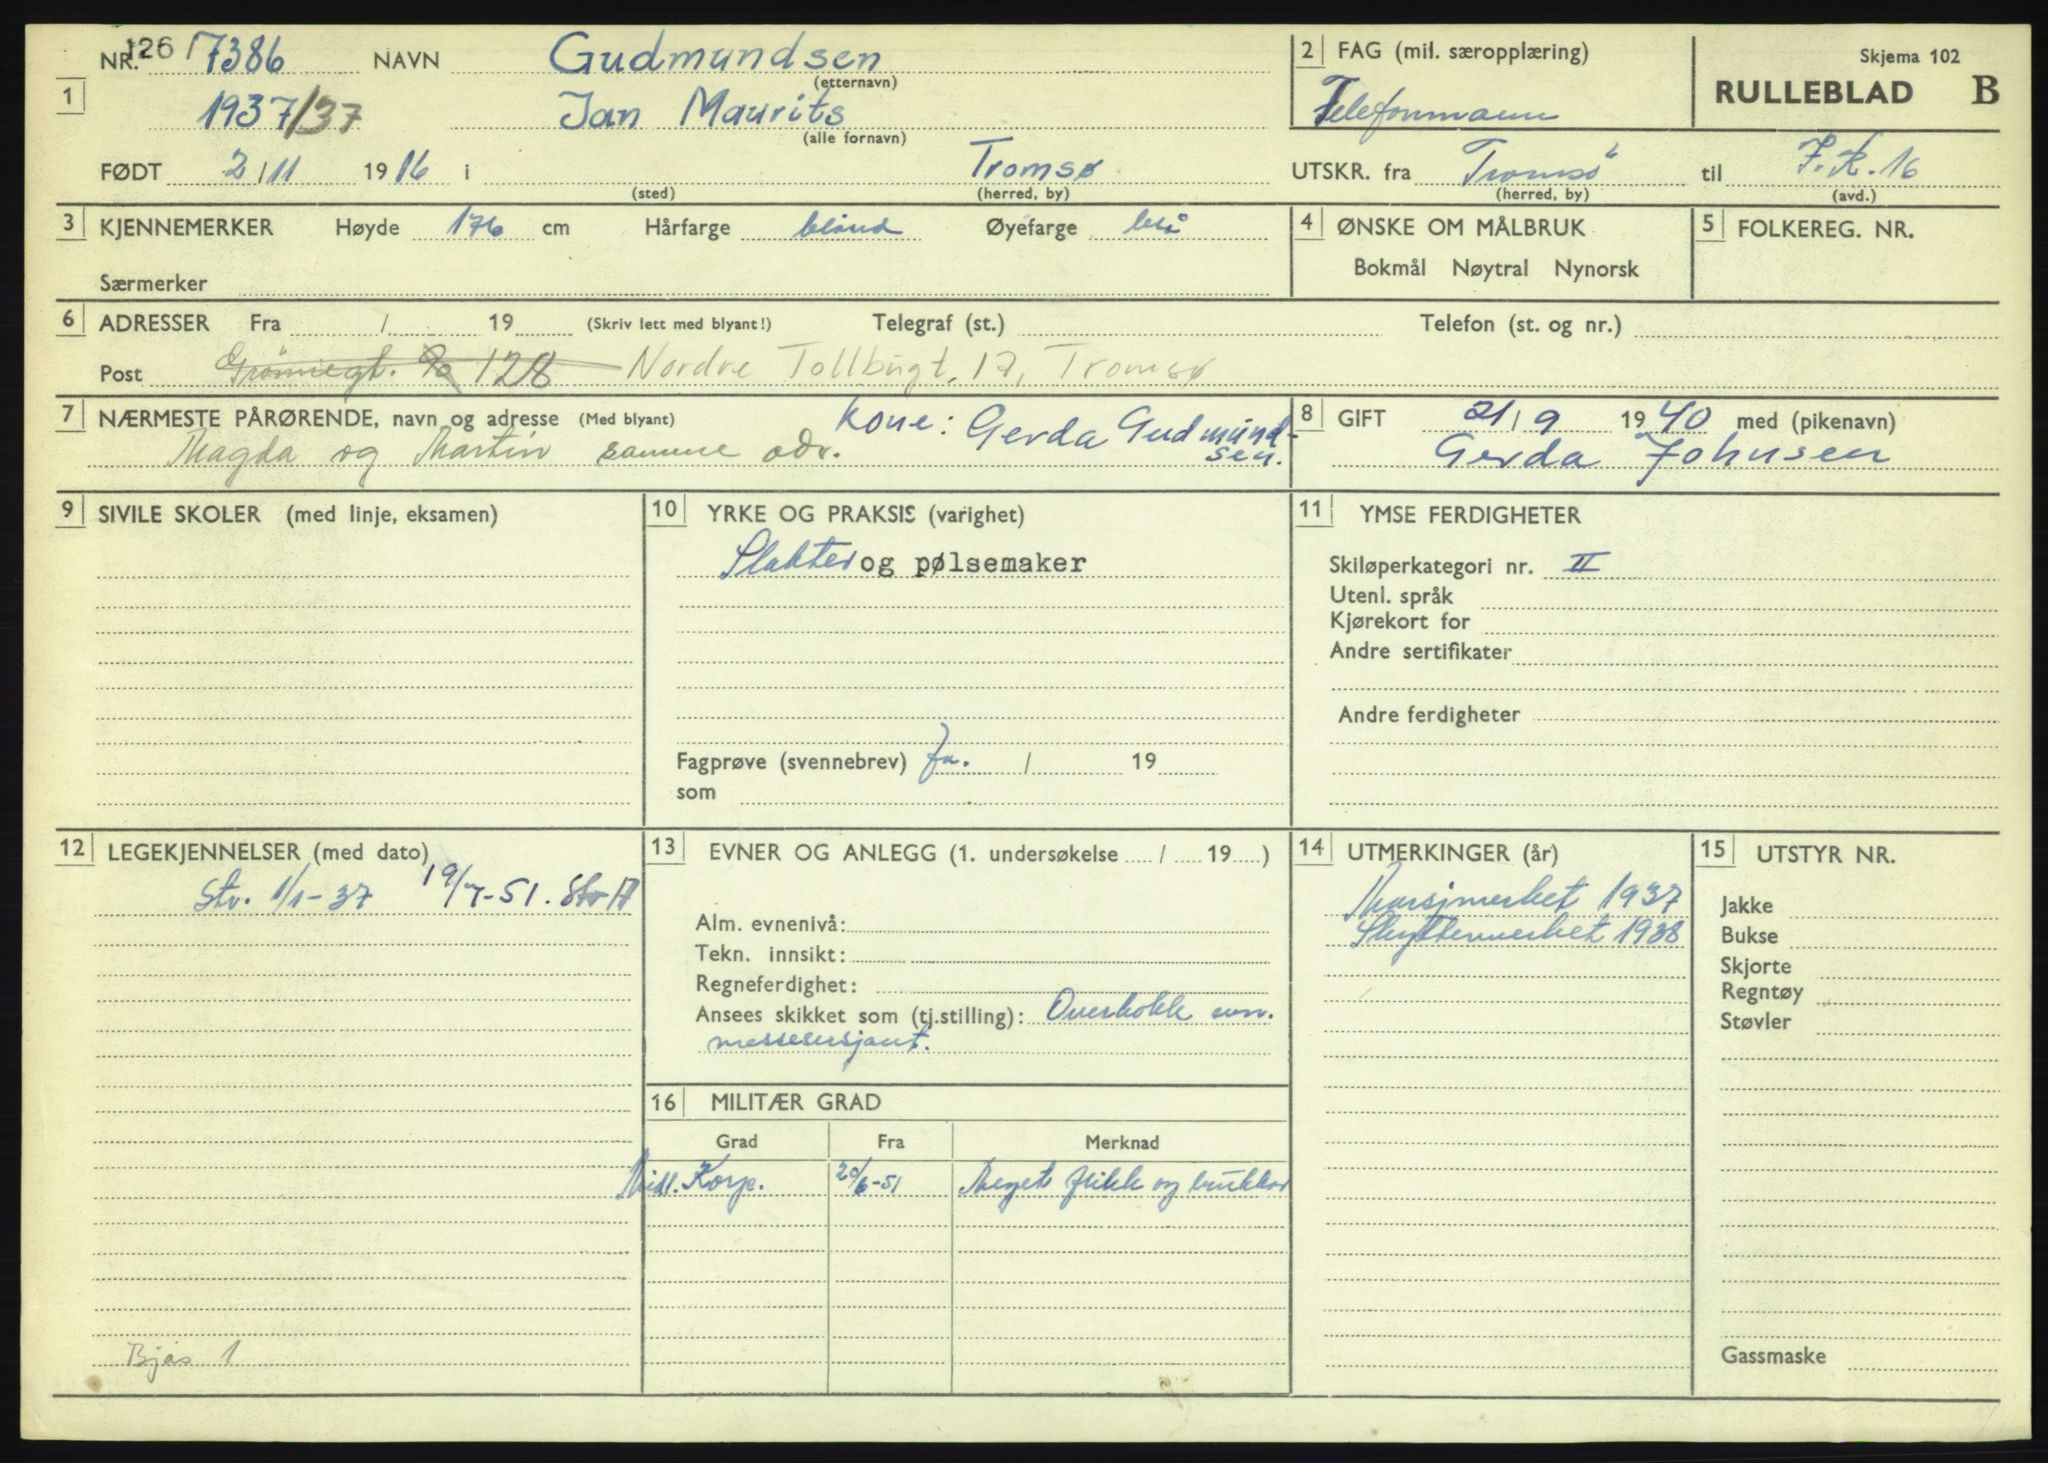 NR. 126 / 7386 NAVN Gudmundsen
(etternavn)
1 1937/37 Jan Maurits
(alle fornavn)
2 FAG (mil. særopplæring)
Telefonmann
Skjema 102
RULLEBLAD B
FØDT 2/11 1916 i Tromsø
(sted) (herred, by)
UTSKR. fra Tromsö til I.R. 16
(herred, by) (avd.)
3 KJENNEMERKER Høyde 176 cm Hårfarge blond Øyefarge blå
Særmerker
4 ØNSKE OM MÅLBRUK
Bokmål Nøytral Nynorsk
5 FOLKEREG. NR.
6 ADRESSER Fra / 19 (Skriv lett med blyant!) Telegraf (st.) Telefon (st. og nr.)
Post 128 Nordre Tollbugt. 17, Tromsø
7 NÆRMESTE PÅRØRENDE, navn og adresse (Med blyant) Kone: Gerda Gudmund-
Magda og Martin samme adr. sen.
8 GIFT 21/9 1940 med (pikenavn)
Gerda Johnsen
9 SIVILE SKOLER (med linje, eksamen)
10 YRKE OG PRAKSIS (varighet)
Slakter og pølsemaker
Fagprøve (svennebrev) Ja. / 19
som
11 YMSE FERDIGHETER
Skiløperkategori nr. II
Utenl. språk
Kjørekort for
Andre sertifikater
Andre ferdigheter
12 LEGEKJENNELSER (med dato)
Stv. 1/1-37 19/7-51. Str A
Bjås 1
13 EVNER OG ANLEGG (1. undersøkelse / 19 )
Alm. evnenivå:
Tekn. innsikt:
Regneferdighet:
Ansees skikket som (tj.stilling): Overkokk evn.
messesersjant.
16 MILITÆR GRAD
Grad Fra Merknad
Midl. Korp. 20/6-51 Meget flikk og brukbar
14 UTMERKINGER (år)
Marsjmerket 1937
Skyttermerket 1938
15 UTSTYR NR.
Jakke
Bukse
Skjorte
Regntøy
Støvler
Gassmaske